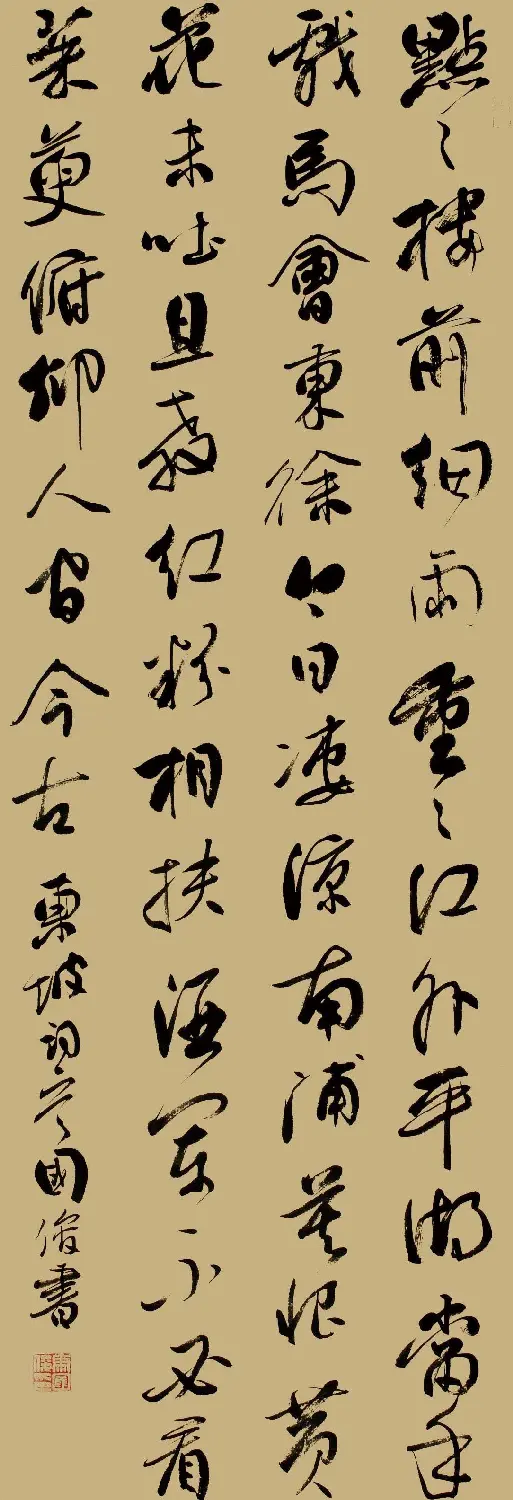 點〻樓前細雨重〻江外平湖當年
戲馬會東徐今日凄涼南浦莫恨黃
花未吐且教紅粉相扶酒闌不必看
茱萸俯仰人間今古 東坡詞國俊書